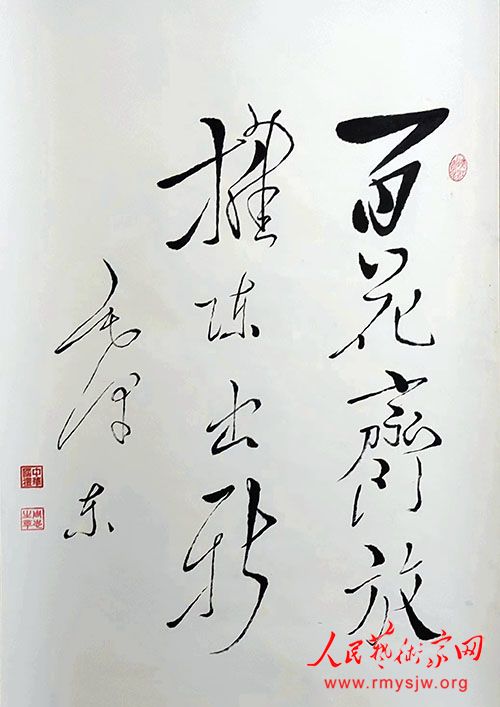 百花齊放
推陈出新
毛泽东
人民藝術家网
www.rmysjw.org